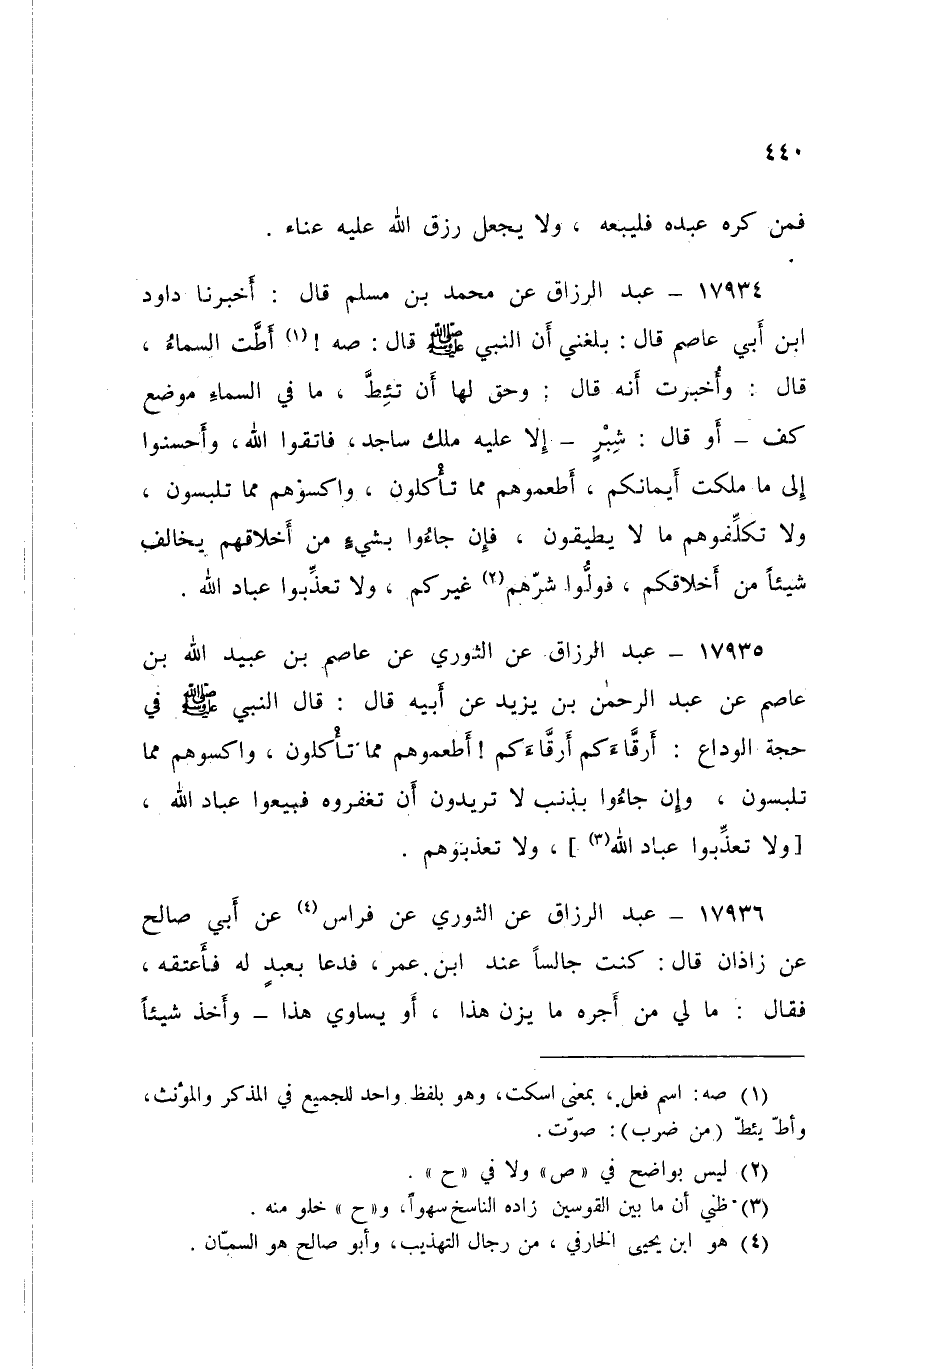 ٤٤٠
فمن كره عبده فليبعه ، ولا يجعل رزق الله عليه عناء .
١٧٩٣٤ – عبد الرزاق عن محمد بن مسلم قال : أخبرنا داود
ابن أبي عاصم قال : بلغني أن النبي ﷺ قال : صه ! (١) أطَّت السماءُ ،
قال : وأُخبرت أنه قال : وحق لها أن تئِطَّ ، ما في السماءِ موضع
كف – أو قال : شِبْرٍ – إلا عليه ملك ساجد ، فاتقوا الله ، وأحسنوا
إلى ما ملكت أيمانكم ، أطعموهم مما تأْكلون ، واكسوْهم مما تلبسون ،
ولا تكلِّفوهم ما لا يطيقون ، فإن جاءُوا بشيءٍ من أخلاقهم يخالف
شيئاً من أخلاقكم ، فولُّوا شرّهم (٢) غيركم ، ولا تعذِّبوا عباد الله .
١٧٩٣٥ – عبد الرزاق عن الثوري عن عاصم بن عبيد الله بن
عاصم عن عبد الرحمٰن بن يزيد عن أبيه قال : قال النبي ﷺ في
حجة الوداع : أرقَّاءَكم أرقَّاءَكم ! أطعموهم مما تأْكلون ، واكسوهم مما
تلبسون ، وإن جاءُوا بذنب لا تريدون أن تغفروه فبيعوا عباد الله ،
[ولا تعذِّبوا عباد الله (٣) ] ، ولا تعذبوهم .
١٧٩٣٦ – عبد الرزاق عن الثوري عن فراس (٤) عن أبي صالح
عن زاذان قال : كنت جالساً عند ابن عمر ، فدعا بعبدٍ له فأعتقه ،
فقال : ما لي من أجره ما يزن هذا ، أو يساوي هذا – وأخذ شيئاً
(١) صه : اسم فعل ، بمعنى اسكت ، وهو بلفظ واحد للجميع في المذكر والمؤنث ،
وأطّ يئطّ (من ضرب) : صوّت .
(٢) ليس بواضح في « ص » ولا في « ح » .
(٣) ظني أن ما بين القوسين زاده الناسخ سهواً ، و« ح » خلو منه .
(٤) هو ابن يحيى الخارفي ، من رجال التهذيب ، وأبو صالح هو السمّان .